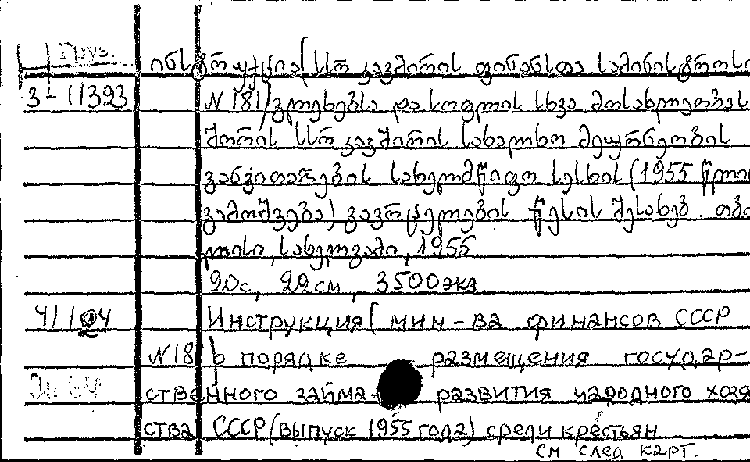 Груз.
ინსტრუქცია (სსრ კავშირის ფინანსთა სამინისტროსი
3-11393 N 181) გლეხებსა და სოფლის სხვა მოსახლეობას
შორის სსრ კავშირის სახალხო მეურნეობის
განვითარების სახელმწიფო სესხის (1955 წლის
გამოშვება) გავრცელების წესის შესახებ. თბი-
ლისი, სახელგამი, 1955
20с, 22см, 3500экз
41104 Инструкция (мин-ва финансов СССР
N 181) о порядке размещения государ-
ственного займа развития народного хозя
ства СССР (выпуск 1955 года) среди крестьян
См след карт.